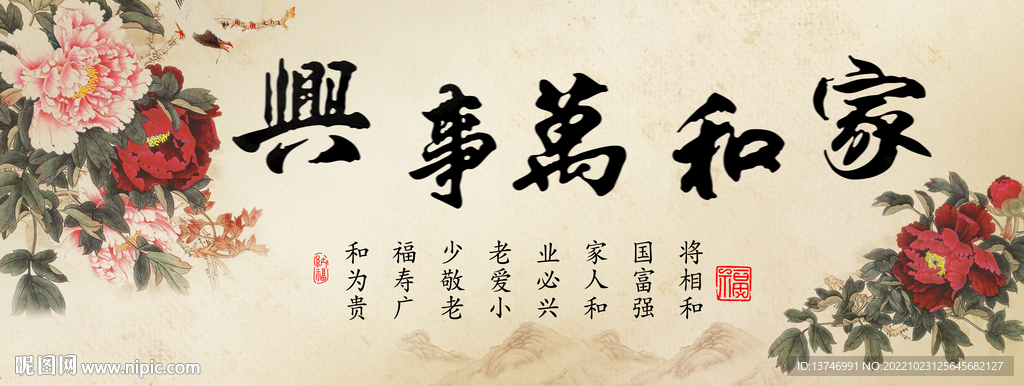 家和萬事興
将相和
国富强
家人和
业必兴
老爱小
少敬老
福寿广
和为贵
福
纳福
昵图网 www.nipic.com
ID:13746991 NO:20221023125645682127